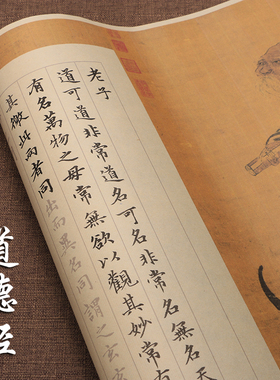 老子
道可道非常道名可名非常名無名天
有名萬物之母常無欲以觀其妙常有
其徼此兩者同出而異名同謂之玄玄
道德經